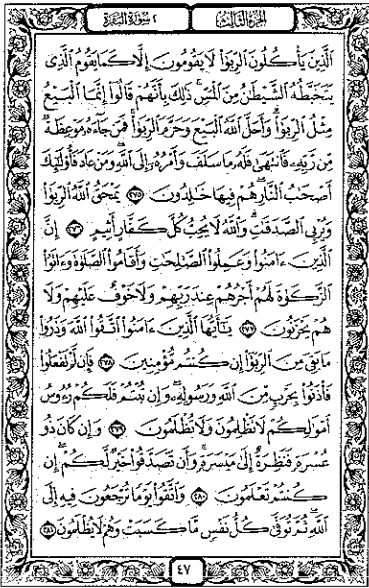 الجزء الثالث
٢ سورة البقرة
ٱلَّذِينَ يَأۡكُلُونَ ٱلرِّبَوٰاْ لَا يَقُومُونَ إِلَّا كَمَا يَقُومُ ٱلَّذِى
يَتَخَبَّطُهُ ٱلشَّيۡطَٰنُ مِنَ ٱلۡمَسِّ ذَٰلِكَ بِأَنَّهُمۡ قَالُوٓاْ إِنَّمَا ٱلۡبَيۡعُ
مِثۡلُ ٱلرِّبَوٰاْ وَأَحَلَّ ٱللَّهُ ٱلۡبَيۡعَ وَحَرَّمَ ٱلرِّبَوٰاْ فَمَن جَآءَهُۥ مَوۡعِظَةٌ
مِّن رَّبِّهِۦ فَٱنتَهَىٰ فَلَهُۥ مَا سَلَفَ وَأَمۡرُهُۥٓ إِلَى ٱللَّهِ وَمَنۡ عَادَ فَأُوْلَٰٓئِكَ
أَصۡحَٰبُ ٱلنَّارِ هُمۡ فِيهَا خَٰلِدُونَ ٢٧٥ يَمۡحَقُ ٱللَّهُ ٱلرِّبَوٰاْ
وَيُرۡبِى ٱلصَّدَقَٰتِ وَٱللَّهُ لَا يُحِبُّ كُلَّ كَفَّارٍ أَثِيمٍ ٢٧٦ إِنَّ
ٱلَّذِينَ ءَامَنُواْ وَعَمِلُواْ ٱلصَّٰلِحَٰتِ وَأَقَامُواْ ٱلصَّلَوٰةَ وَءَاتَوُاْ
ٱلزَّكَوٰةَ لَهُمۡ أَجۡرُهُمۡ عِندَ رَبِّهِمۡ وَلَا خَوۡفٌ عَلَيۡهِمۡ وَلَا
هُمۡ يَحۡزَنُونَ ٢٧٧ يَٰٓأَيُّهَا ٱلَّذِينَ ءَامَنُواْ ٱتَّقُواْ ٱللَّهَ وَذَرُواْ
مَا بَقِىَ مِنَ ٱلرِّبَوٰٓاْ إِن كُنتُم مُّؤۡمِنِينَ ٢٧٨ فَإِن لَّمۡ تَفۡعَلُواْ
فَأۡذَنُواْ بِحَرۡبٍ مِّنَ ٱللَّهِ وَرَسُولِهِۦ وَإِن تُبۡتُمۡ فَلَكُمۡ رُءُوسُ
أَمۡوَٰلِكُمۡ لَا تَظۡلِمُونَ وَلَا تُظۡلَمُونَ ٢٧٩ وَإِن كَانَ ذُو
عُسۡرَةٍ فَنَظِرَةٌ إِلَىٰ مَيۡسَرَةٍ وَأَن تَصَدَّقُواْ خَيۡرٌ لَّكُمۡ إِن
كُنتُمۡ تَعۡلَمُونَ ٢٨٠ وَٱتَّقُواْ يَوۡمًا تُرۡجَعُونَ فِيهِ إِلَى
ٱللَّهِ ثُمَّ تُوَفَّىٰ كُلُّ نَفۡسٍ مَّا كَسَبَتۡ وَهُمۡ لَا يُظۡلَمُونَ ٢٨١
٤٧